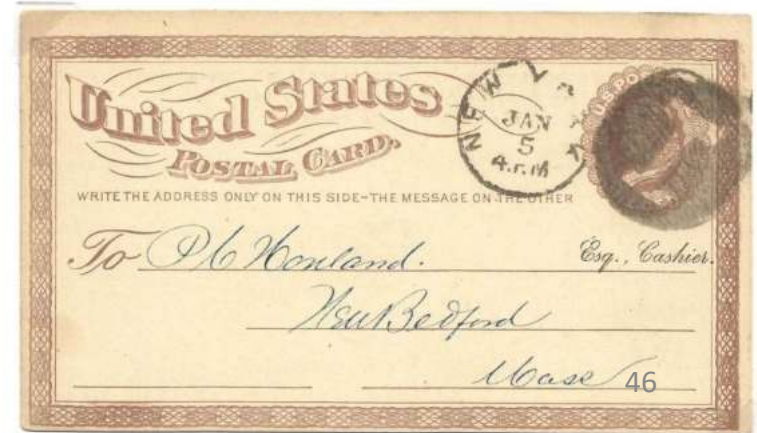 United States
POSTAL CARD.
NEW YORK
JAN
5
4.P.M
U.S. PO
WRITE THE ADDRESS ONLY ON THIS SIDE-THE MESSAGE ON THE OTHER
To P C Howland. Esq., Cashier.
New Bedford
Mass
46